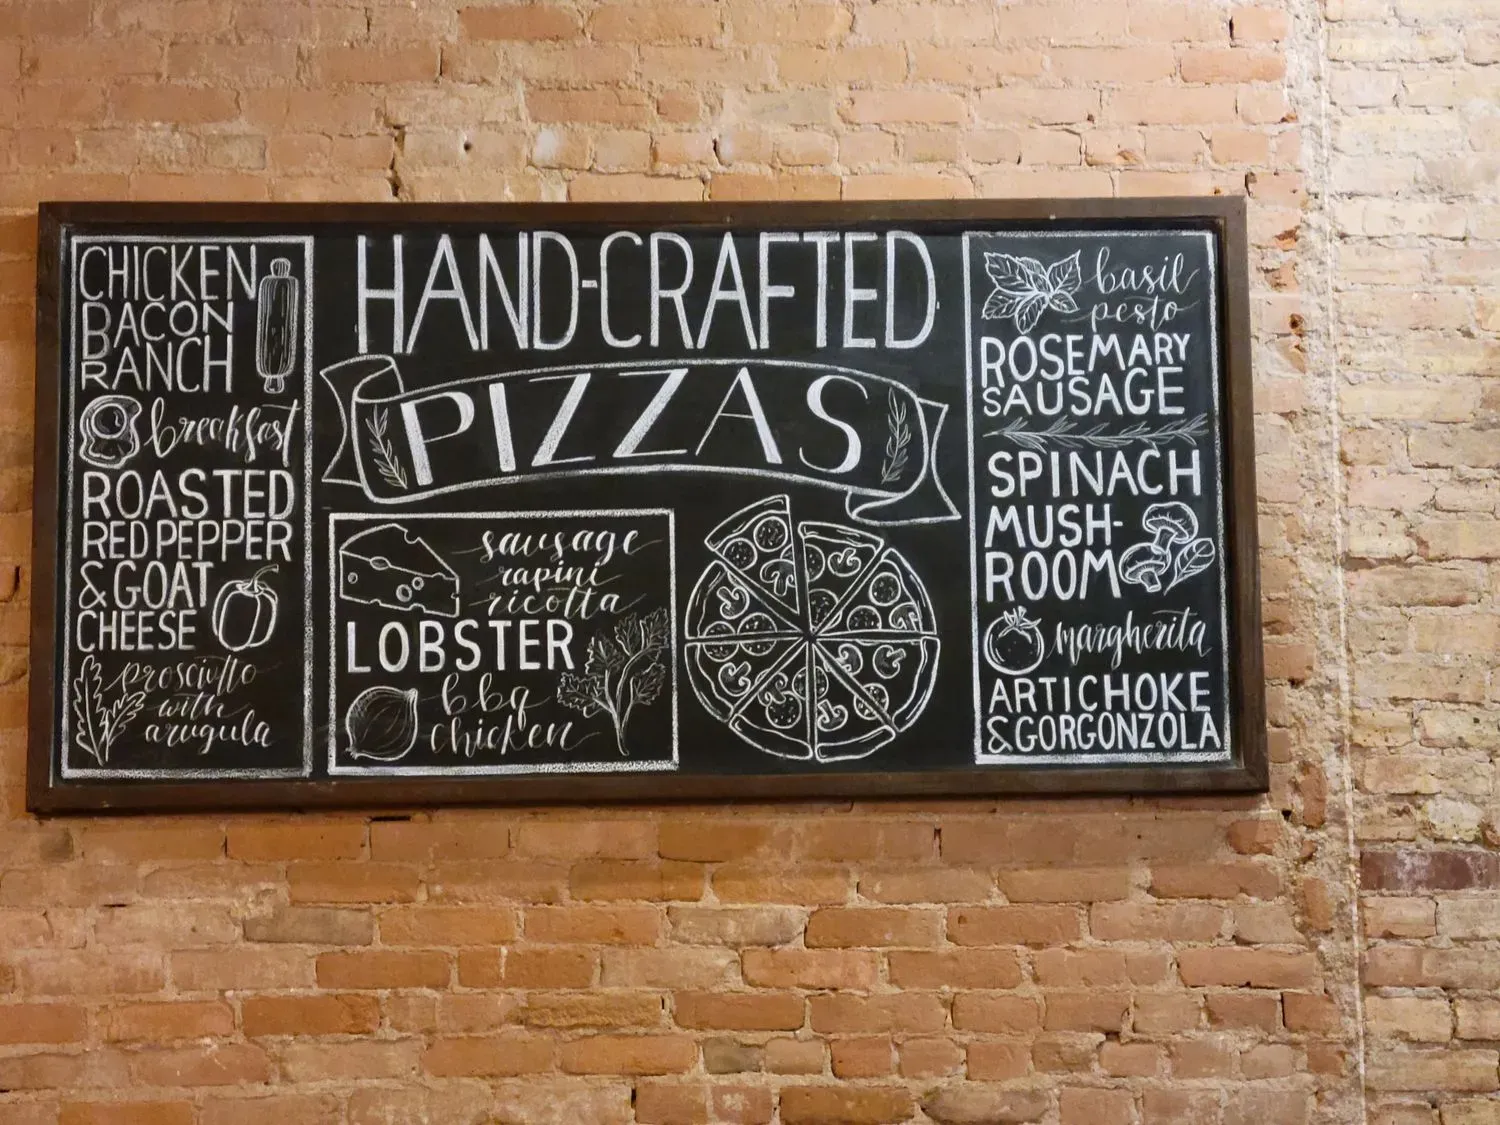 CHICKEN
BACON
RANCH
breakfast
ROASTED
RED PEPPER
& GOAT
CHEESE
prosciutto
with
arugula
HAND-CRAFTED
PIZZAS
sausage
rapini
ricotta
LOBSTER
bbq
chicken
basil
pesto
ROSEMARY
SAUSAGE
SPINACH
MUSH-
ROOM
margherita
ARTICHOKE
& GORGONZOLA